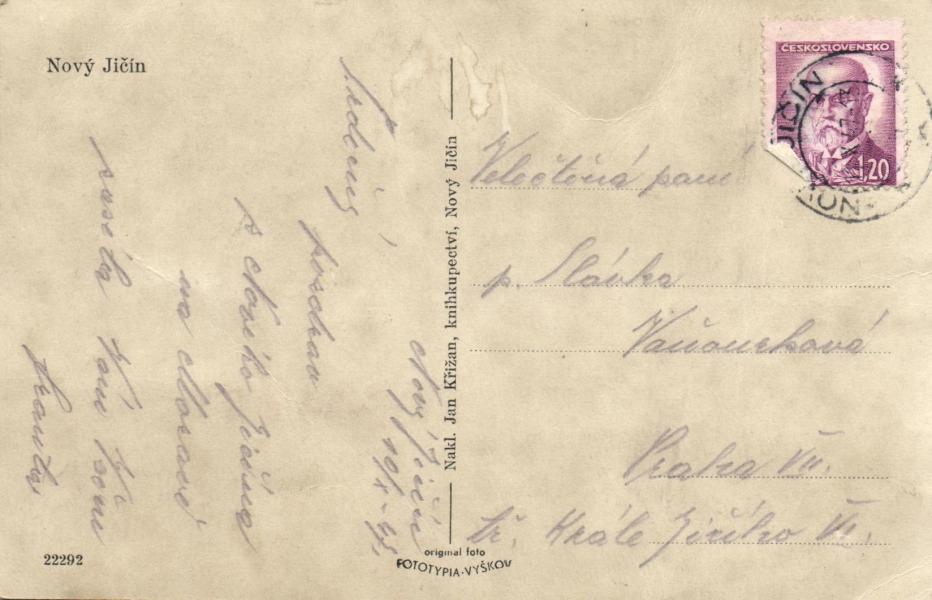 Nový Jičín
Nový Jičín
Srdečný
pozdrav
z Nového Jičína
na Moravě
Nakl. Jan Křižan, knihkupectví, Nový Jičín
ČESKOSLOVENSKO
1,20
JIČÍN
Velectěná paní
p. Slávka
Vaňourková
Praha VII.
tř. Krále Jiřího VI.
22292
original foto
FOTOTYPIA-VYŠKOV